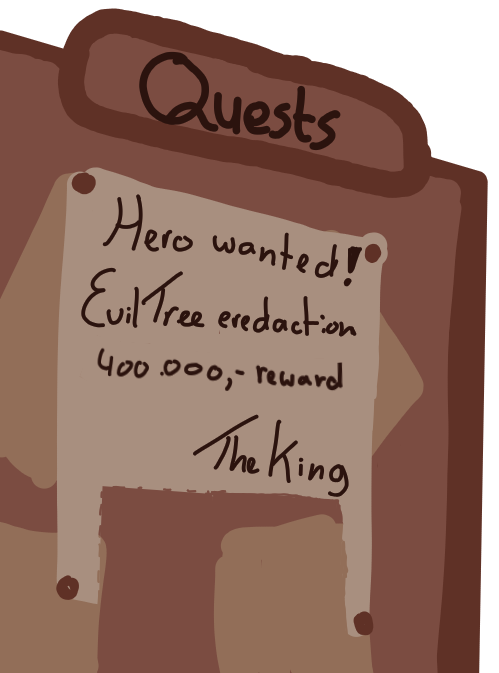 Quests
Hero wanted!
Evil Tree eredaction
400.000,- reward
The King